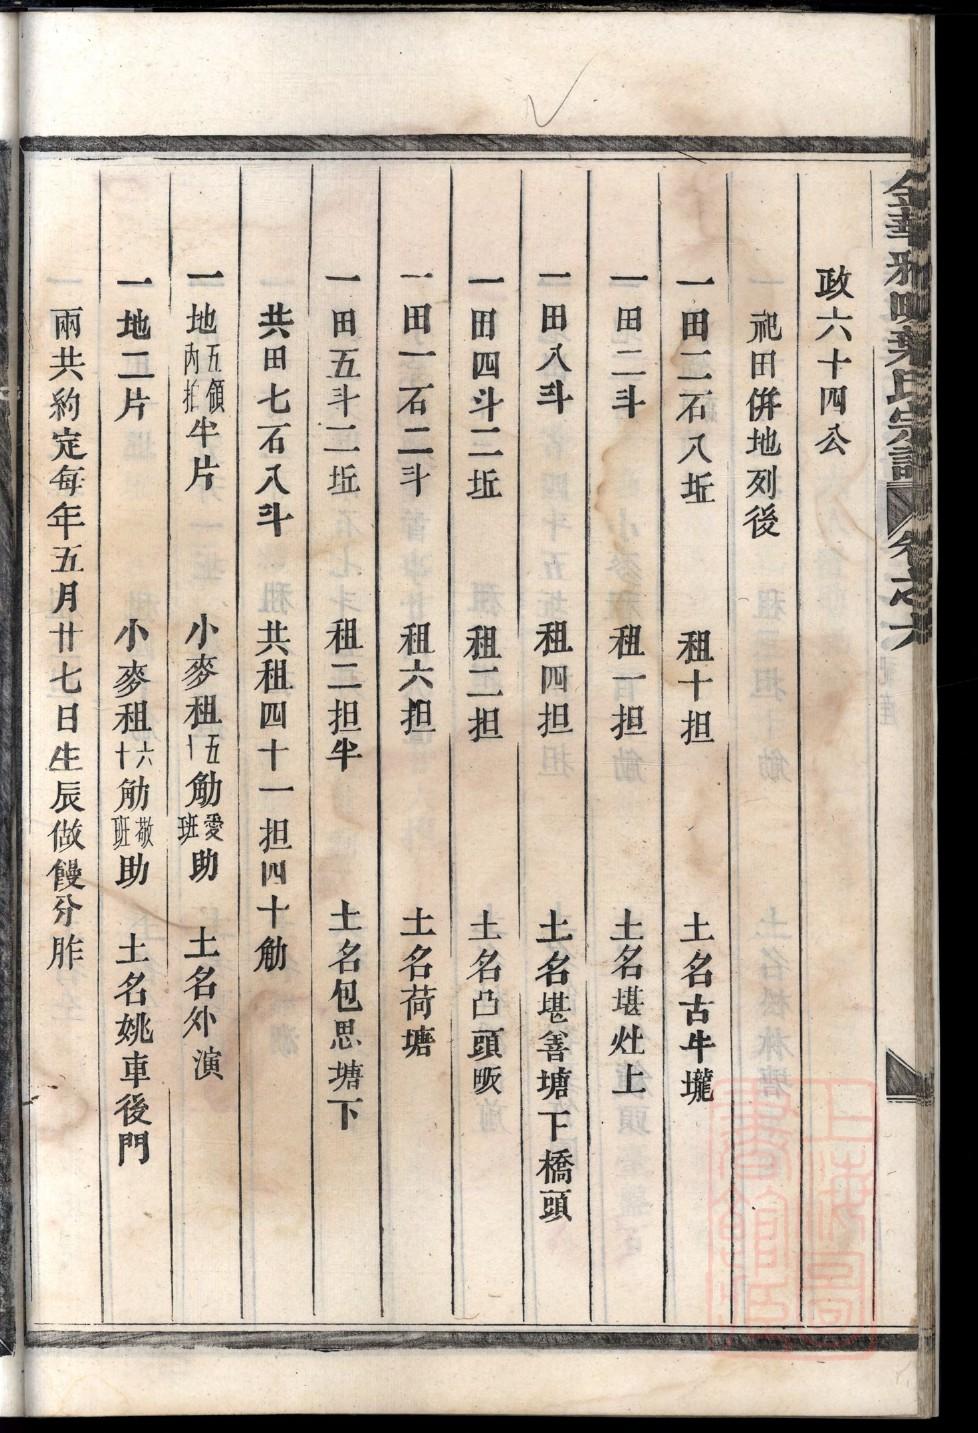 政六十四公
祀田併地列後
一田二石八坵　租十担　土名古牛壠
一田二斗　租一担　土名堪灶上
一田八斗　租四担　土名堪善塘下橋頭
一田四斗三坵　租二担　土名凸頭畈
一田一石二斗　租六担　土名荷塘
一田五斗二坵　租二担半　土名包思塘下
共田七石八斗　共租四十一担四十觔
一地五領內半片　小麥租五十觔愛班助　土名外演
一地二片　小麥租六十觔敬班助　土名姚車後門
一兩共約定每年五月廿七日生辰做饅分胙
金華 葉氏宗譜　卷之六
上海圖書館